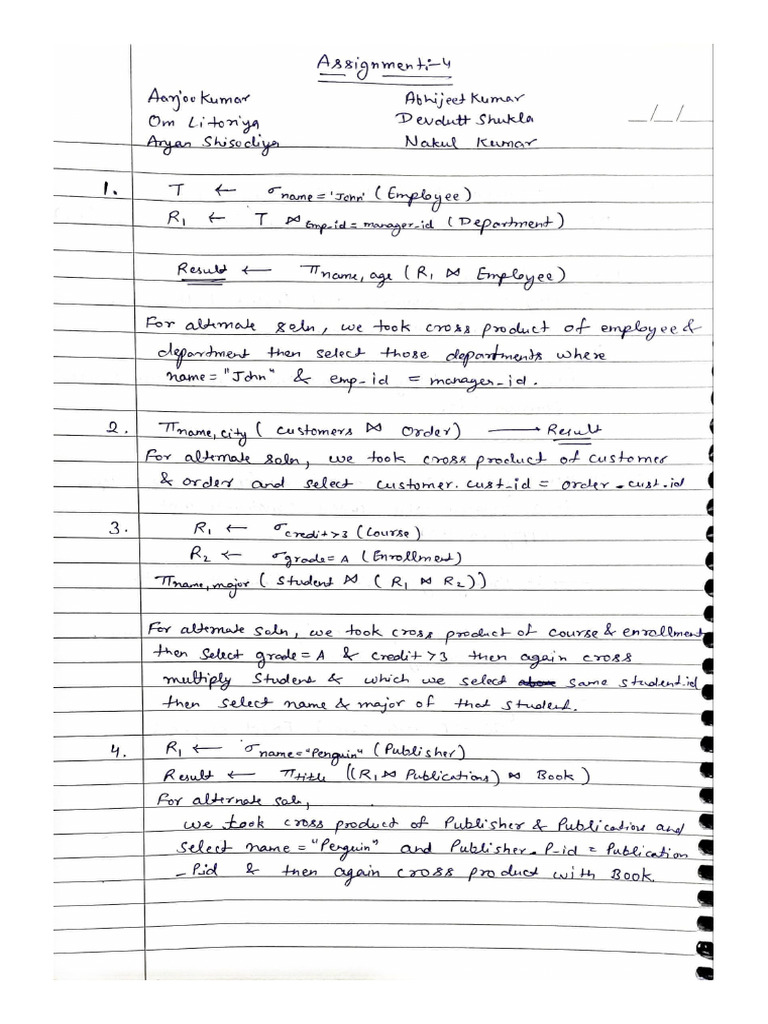 Assignment:-4
Aarjoo Kumar Abhijeet Kumar
Om Litoriya Devdutt Shukla __/__/__
Aryan Shisodiya Nakul Kumar
1. T ← σname='John' (Employee)
R1 ← T ⋈Emp_id = manager_id (Department)
Result ← πname, age (R1 ⋈ Employee)
For altrnate soln, we took cross product of employee &
department then select those departments where
name = "John" & emp_id = manager_id.
2. πname, city ( customers ⋈ Order) → Result
For alternate soln, we took cross product of customer
& order and select customer.cust_id = order_cust.id
3. R1 ← σcredit>3 (Course)
R2 ← σgrade=A (Enrollment)
πname, major ( Student ⋈ ( R1 ⋈ R2))
For alternate soln, we took cross product of course & enrollment
then select grade = A & credit >3 then again cross
multiply Student & which we select same student.id
then select name & major of that student.
4. R1 ← σname="Penguin" (Publisher)
Result ← πtitle ((R1 ⋈ Publications) ⋈ Book)
For alternate soln,
we took cross product of Publisher & Publications and
select name = "Penguin" and Publisher_P-id = Publication
_P.id & then again cross product with Book.